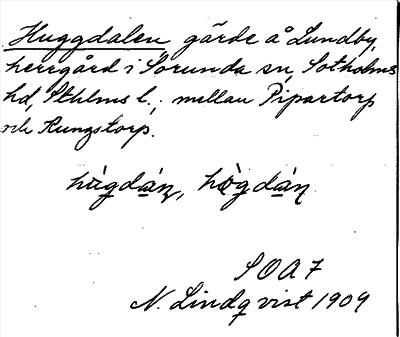 Huggdalen gärde å Lundby,
herrgård i Sorunda sn, Sotholms
hd, Sthlms l., mellan Pipartorp
och Rungstorp.
SOA 7
N. Lindqvist 1909